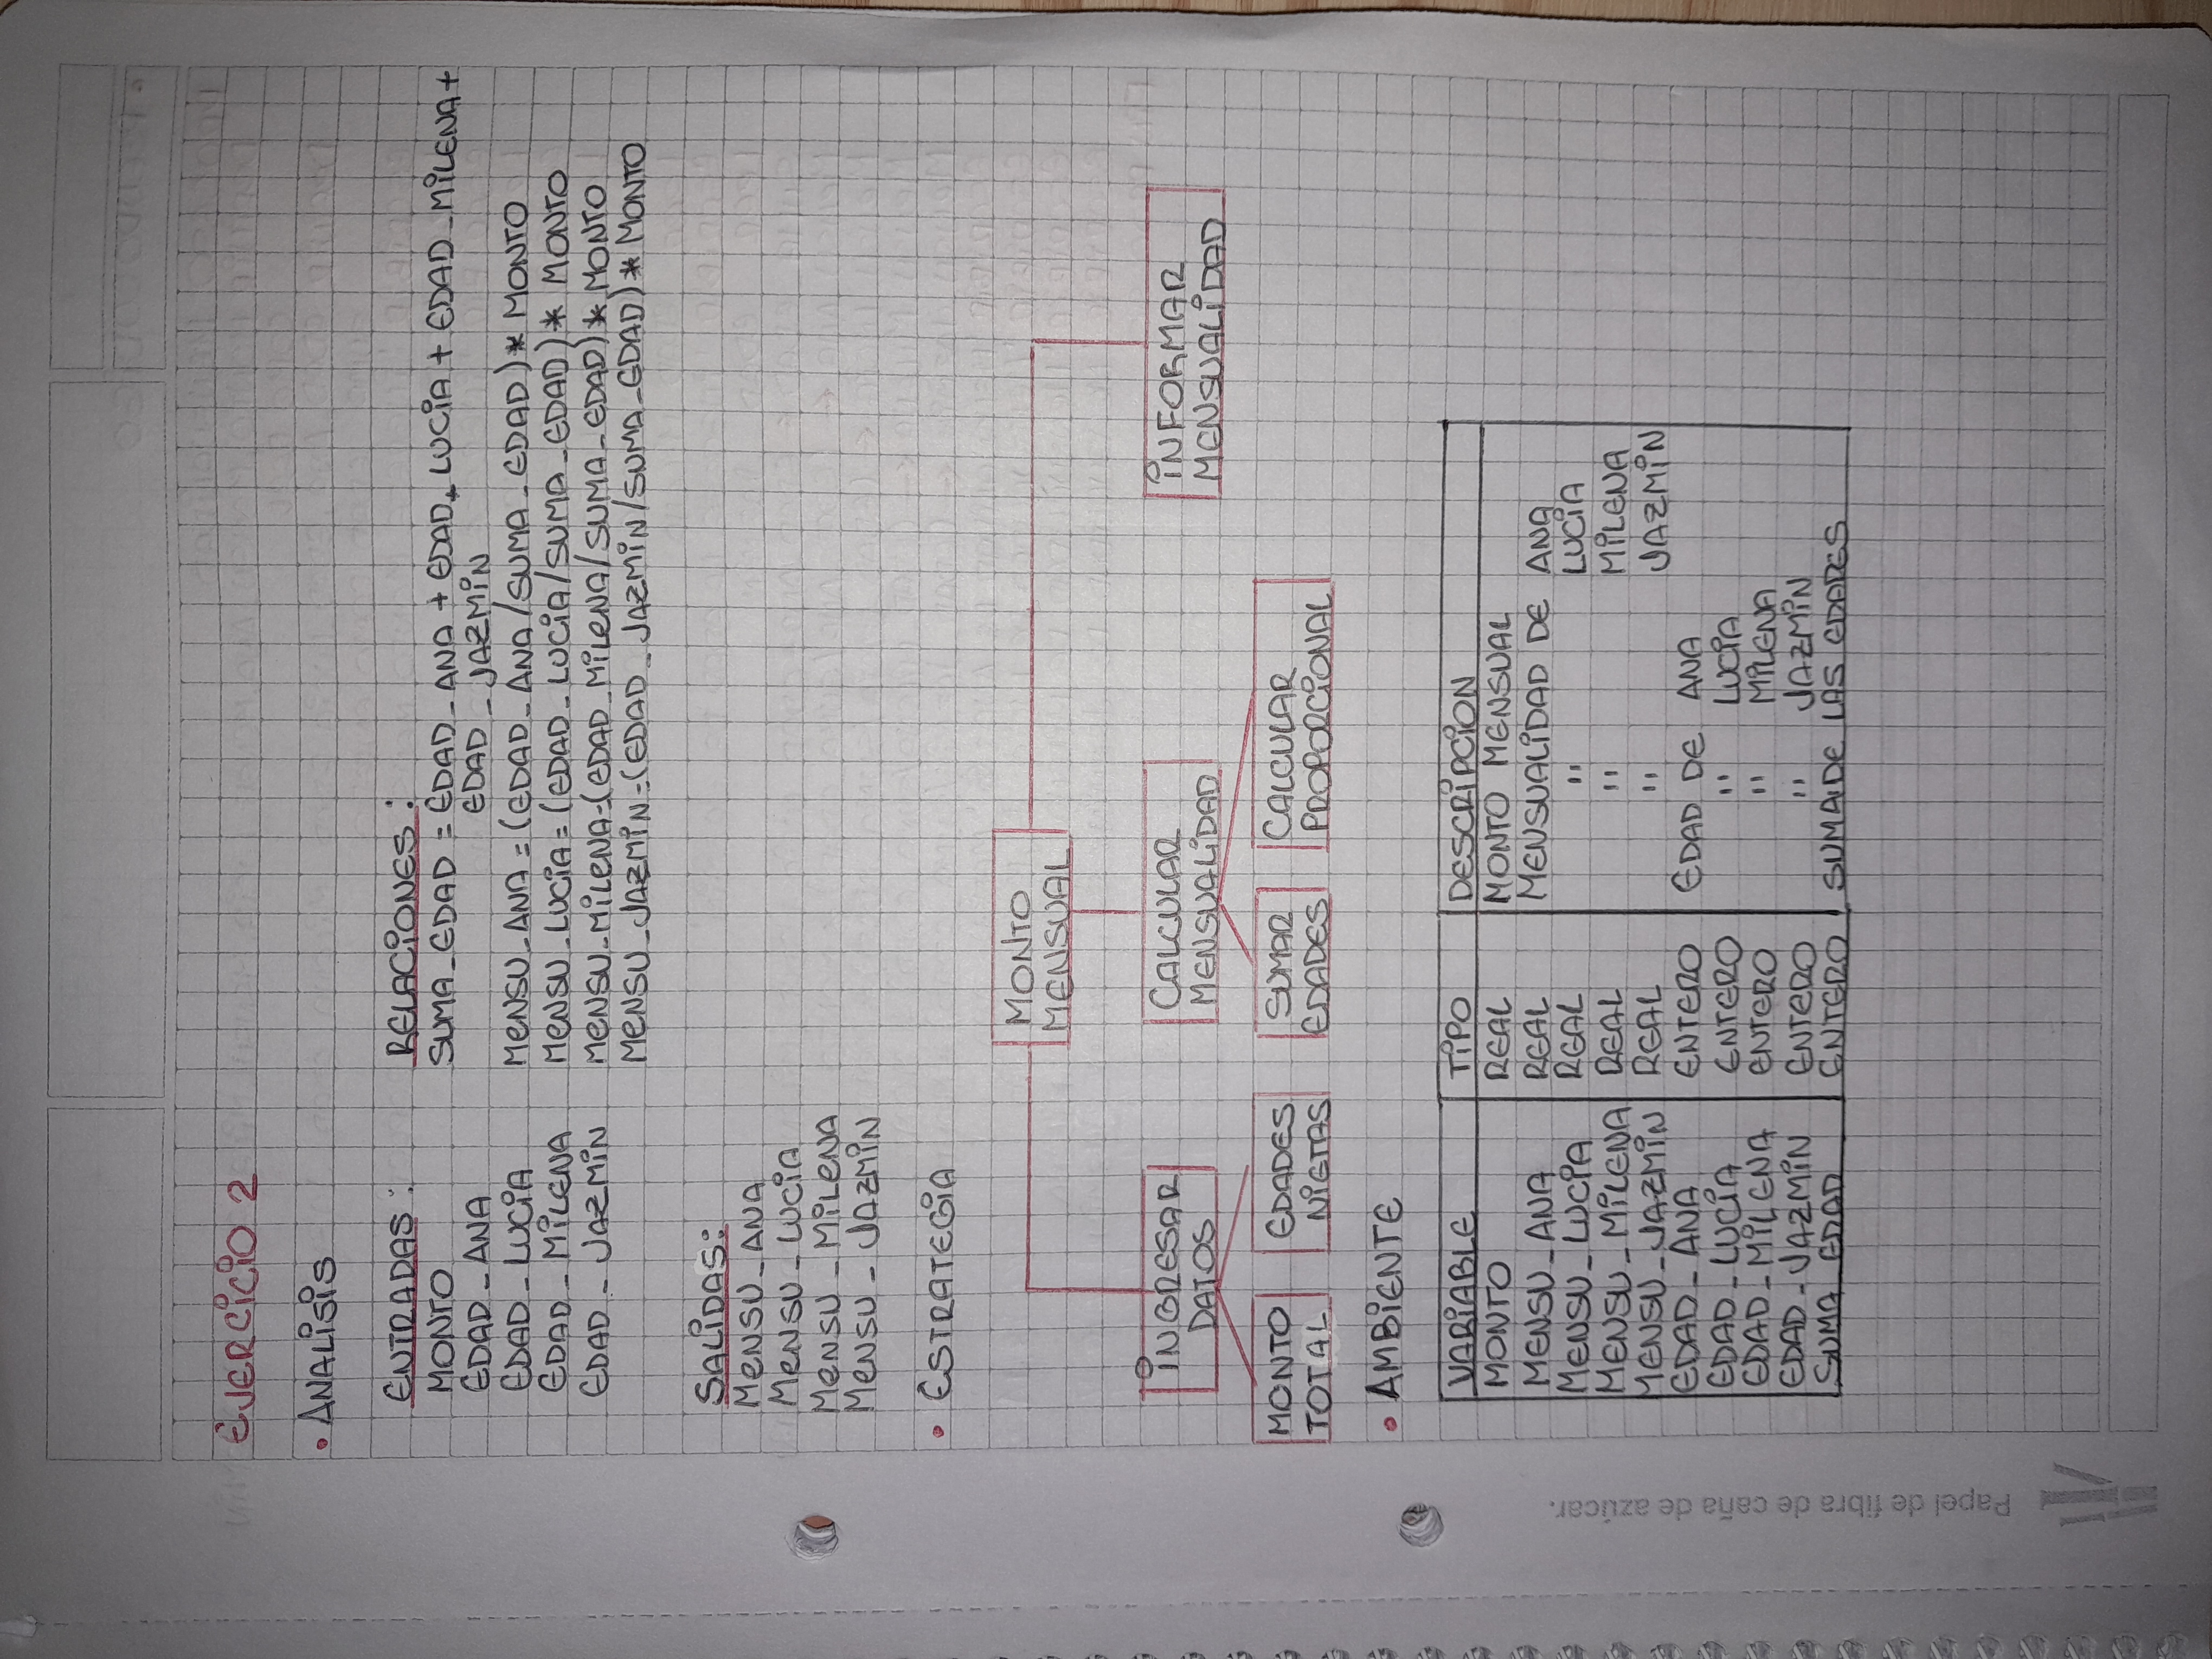 EJERCICIO 2
• ANALISIS
ENTRADAS:
MONTO
EDAD_ANA
EDAD_LUCIA
EDAD_MILENA
EDAD_JAZMIN
RELACIONES:
SUMA_EDAD = EDAD_ANA + EDAD_LUCIA + EDAD_MILENA +
EDAD_JAZMIN
MENSU_ANA = (EDAD_ANA/SUMA_EDAD) * MONTO
MENSU_LUCIA = (EDAD_LUCIA/SUMA_EDAD) * MONTO
MENSU_MILENA = (EDAD_MILENA/SUMA_EDAD) * MONTO
MENSU_JAZMIN = (EDAD_JAZMIN/SUMA_EDAD) * MONTO
SALIDAS:
MENSU_ANA
MENSU_LUCIA
MENSU_MILENA
MENSU_JAZMIN
• ESTRATEGIA
MONTO
MENSUAL
INGRESAR
DATOS
CALCULAR
MENSUALIDAD
INFORMAR
MENSUALIDAD
MONTO
TOTAL
EDADES
NIETAS
SUMAR
EDADES
CALCULAR
PROPORCIONAL
• AMBIENTE
VARIABLE TIPO DESCRIPCION
MONTO REAL MONTO MENSUAL
MENSU_ANA REAL MENSUALIDAD DE ANA
MENSU_LUCIA REAL " LUCIA
MENSU_MILENA REAL " MILENA
MENSU_JAZMIN REAL " JAZMIN
EDAD_ANA ENTERO EDAD DE ANA
EDAD_LUCIA ENTERO " LUCIA
EDAD_MILENA ENTERO " MILENA
EDAD_JAZMIN ENTERO " JAZMIN
SUMA_EDAD ENTERO SUMA DE LAS EDADES
Papel de fibra de caña de azúcar.